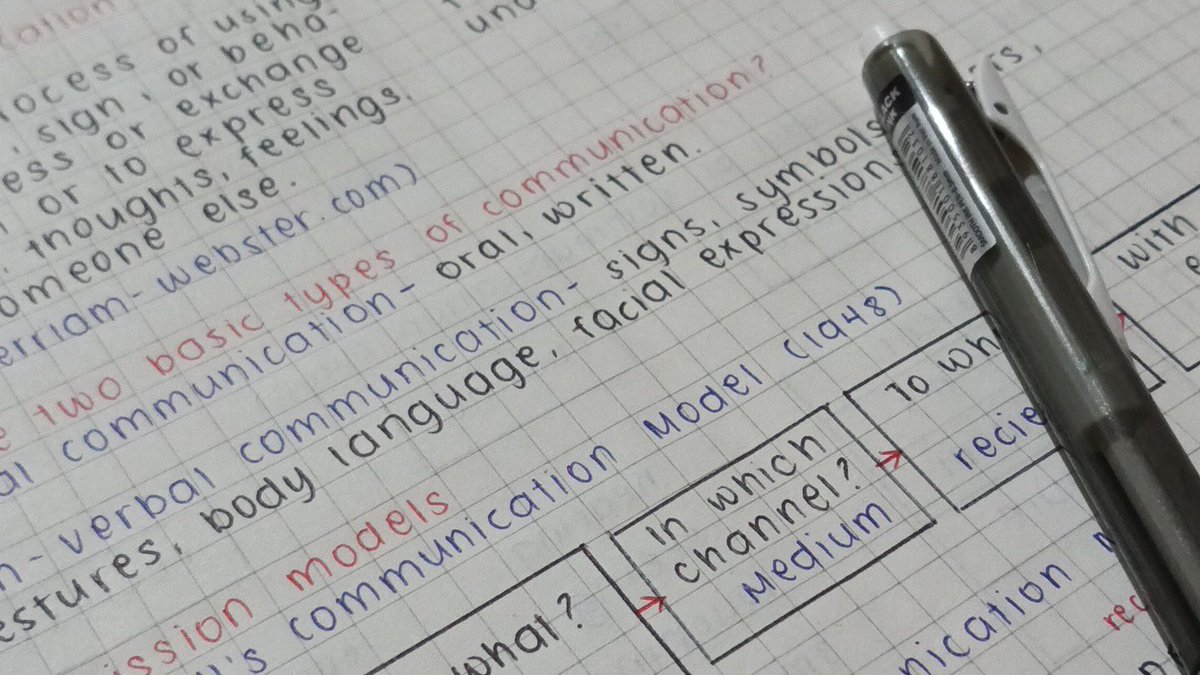 ocess of using
sign, or beha-
ess or exchange
or to express
thoughts, feelings
omeone else.
erriam-webster.com)
two basic types of communication?
al communication- oral, written.
n-verbal communication- signs, symbols
estures, body language, facial expression
ission models
l's communication Model (1948)
what?
In which
channel?
Medium
To wh
recie
with
nication
rec